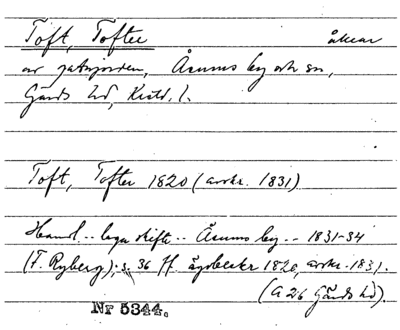 Toft, Tofter åkrar
av gatujorden, Åsums by och sn,
Gärds hd, Krist. l.
Toft, Tofter 1820 (avskr. 1831)
Handl. .. laga skifte .. Åsums by .. 1831-34
(F. Ryberg); s. 36 ff. ägobeskr 1820, avskr. 1831.
(A 26 Gärds hd).
Nr 5344.